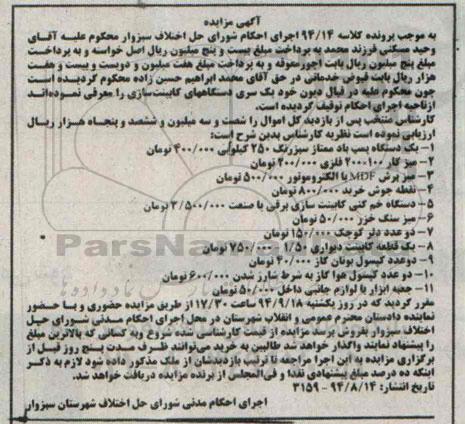 آگهی مزایده
به موجب پرونده کلاسه ۹۴/۱۴ اجرای احکام شورای حل اختلاف سبزوار محکوم علیـه آقـای
وحید مسکنی فرزند محمد به پرداخت مبلغ بیست و پنج میلیون ریال اصل خواسته و به پرداخت
مبلغ پنج میلیون ریال بابت اجور معوقه و به پرداخت مبلغ هفت میلیون و دویست و بیست و هفت
هزار ریال بابت قبوض خدماتی در حق آقای محمد ابراهیم حسن زاده محکوم گردیـده اسـت
چون محکوم علیه در قبال دیون خود یک سری دستگاههای کابینت‌سازی را معرفی نموده‌انـد
ازناحیه اجرای احکام توقیف گردیده است.
کارشناس منتخب پس از بازدید کل اموال را شصت و سه میلیون و ششصد و پنجـاه هـزار ریـال
ارزیابی نموده است نظریه کارشناس بدین شرح است:
۱- یک دستگاه پمپ باد ممتاز سبزرنگ ۲۵۰ کیلوئی ۴۰۰/۰۰۰ تومان
۲- میز کار ۱۰۰*۲۰۰ فلزی ۲۰۰/۰۰۰ تومان
۳- میز برش MDF با الکتروموتور ۵۰۰/۰۰۰ تومان
۴- نقطه جوش خرید ۸۰۰/۰۰۰ تومان
۵- دستگاه خم کنی کابینت سازی برقی با صنعت ۳/۵۰۰/۰۰۰ تومان
۶- میز سنگ خزر ۵۰/۰۰۰ تومان
۷- دو عدد دلر کوچک ۱۵۰/۰۰۰ تومان
۸- یک قطعه کابینت دیواری ۱/۵۰ - ۷۵۰/۰۰۰ تومان
۹- دوعدد کپسول بوتان گاز ۴۰/۰۰۰ تومان
۱۰- دو عدد کپسول هوا گاز به شرط شارژ شدن ۶۰۰/۰۰۰ تومان
۱۱- جعبه ابزار با لوازم جانبی داخل ۵۰/۰۰۰ تومان
مقرر گردید که در روز یکشنبه ۹۴/۹/۱۸ ساعت ۱۷/۳۰ از طریق مزایده حضوری و بـا حضـور
نماینده دادستان محترم عمومی و انقلاب شهرستان در محل اجرای احکام مـدنی شـورای حـل
اختلاف سبزوار بفروش برسد مزایده از قیمت کارشناسی شده شروع وبه کسانی که بالاترین مبلغ
را پیشنهاد نمایند واگذار خواهد شد طالبین به خرید می‌توانند ظـرف مـدت پـنج روز قبـل از
برگزاری مزایده به این اجرا مراجعه تا ترتیب بازدیدشان از ملک مذکور داده شود لازم به ذکـر
اینکه ده درصد مبلغ پیشنهادی نقدا و فی‌المجلس از برنده مزایده دریافت خواهد شد.
تاریخ انتشار: ۹۴/۸/۱۴ - ۳۱۵۹
اجرای احکام مدنی شورای حل اختلاف شهرستان سبزوار